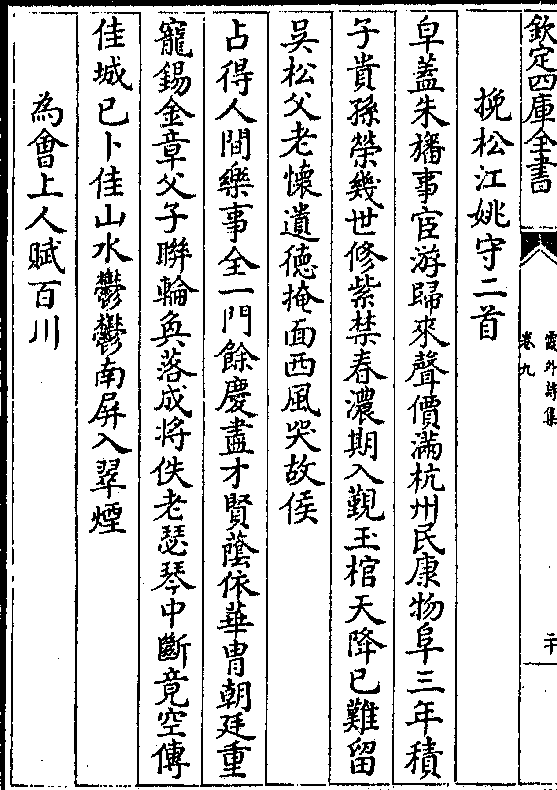 欽定四庫全書
霞外詩集
卷九
二十
挽松江姚守二首
皁蓋朱旛事宦游歸來聲價滿杭州民康物阜三年積
子貴孫榮幾世修紫禁春濃期入覲玉棺天降已難留
吳松父老懷遺德掩面西風哭故侯
占得人間樂事全一門餘慶盡才賢蔭依華胄朝廷重
寵錫金章父子聯輪奐落成將佚老瑟琴中斷竟空傳
佳城已卜佳山水鬱鬱南屏入翠煙
為會上人賦百川